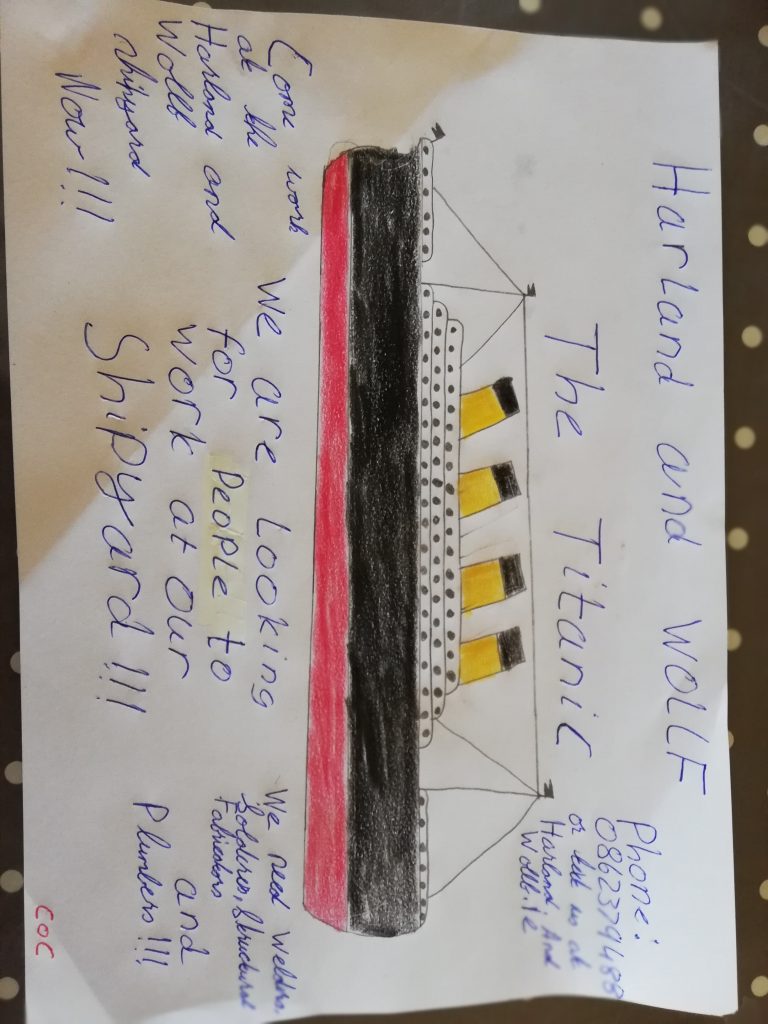 Harland and Wollf
The Titanic
Phone:
0862379488
or text us at
Harland And
Wollf.ie
Come work
at the
Harland and
Wollf
shipyard
Now!!!
We are Looking
for People to
work at our
Shipyard!!!
We need Welders,
Solderes, Structural
Fabricators
and
Plumbers!!!
COC